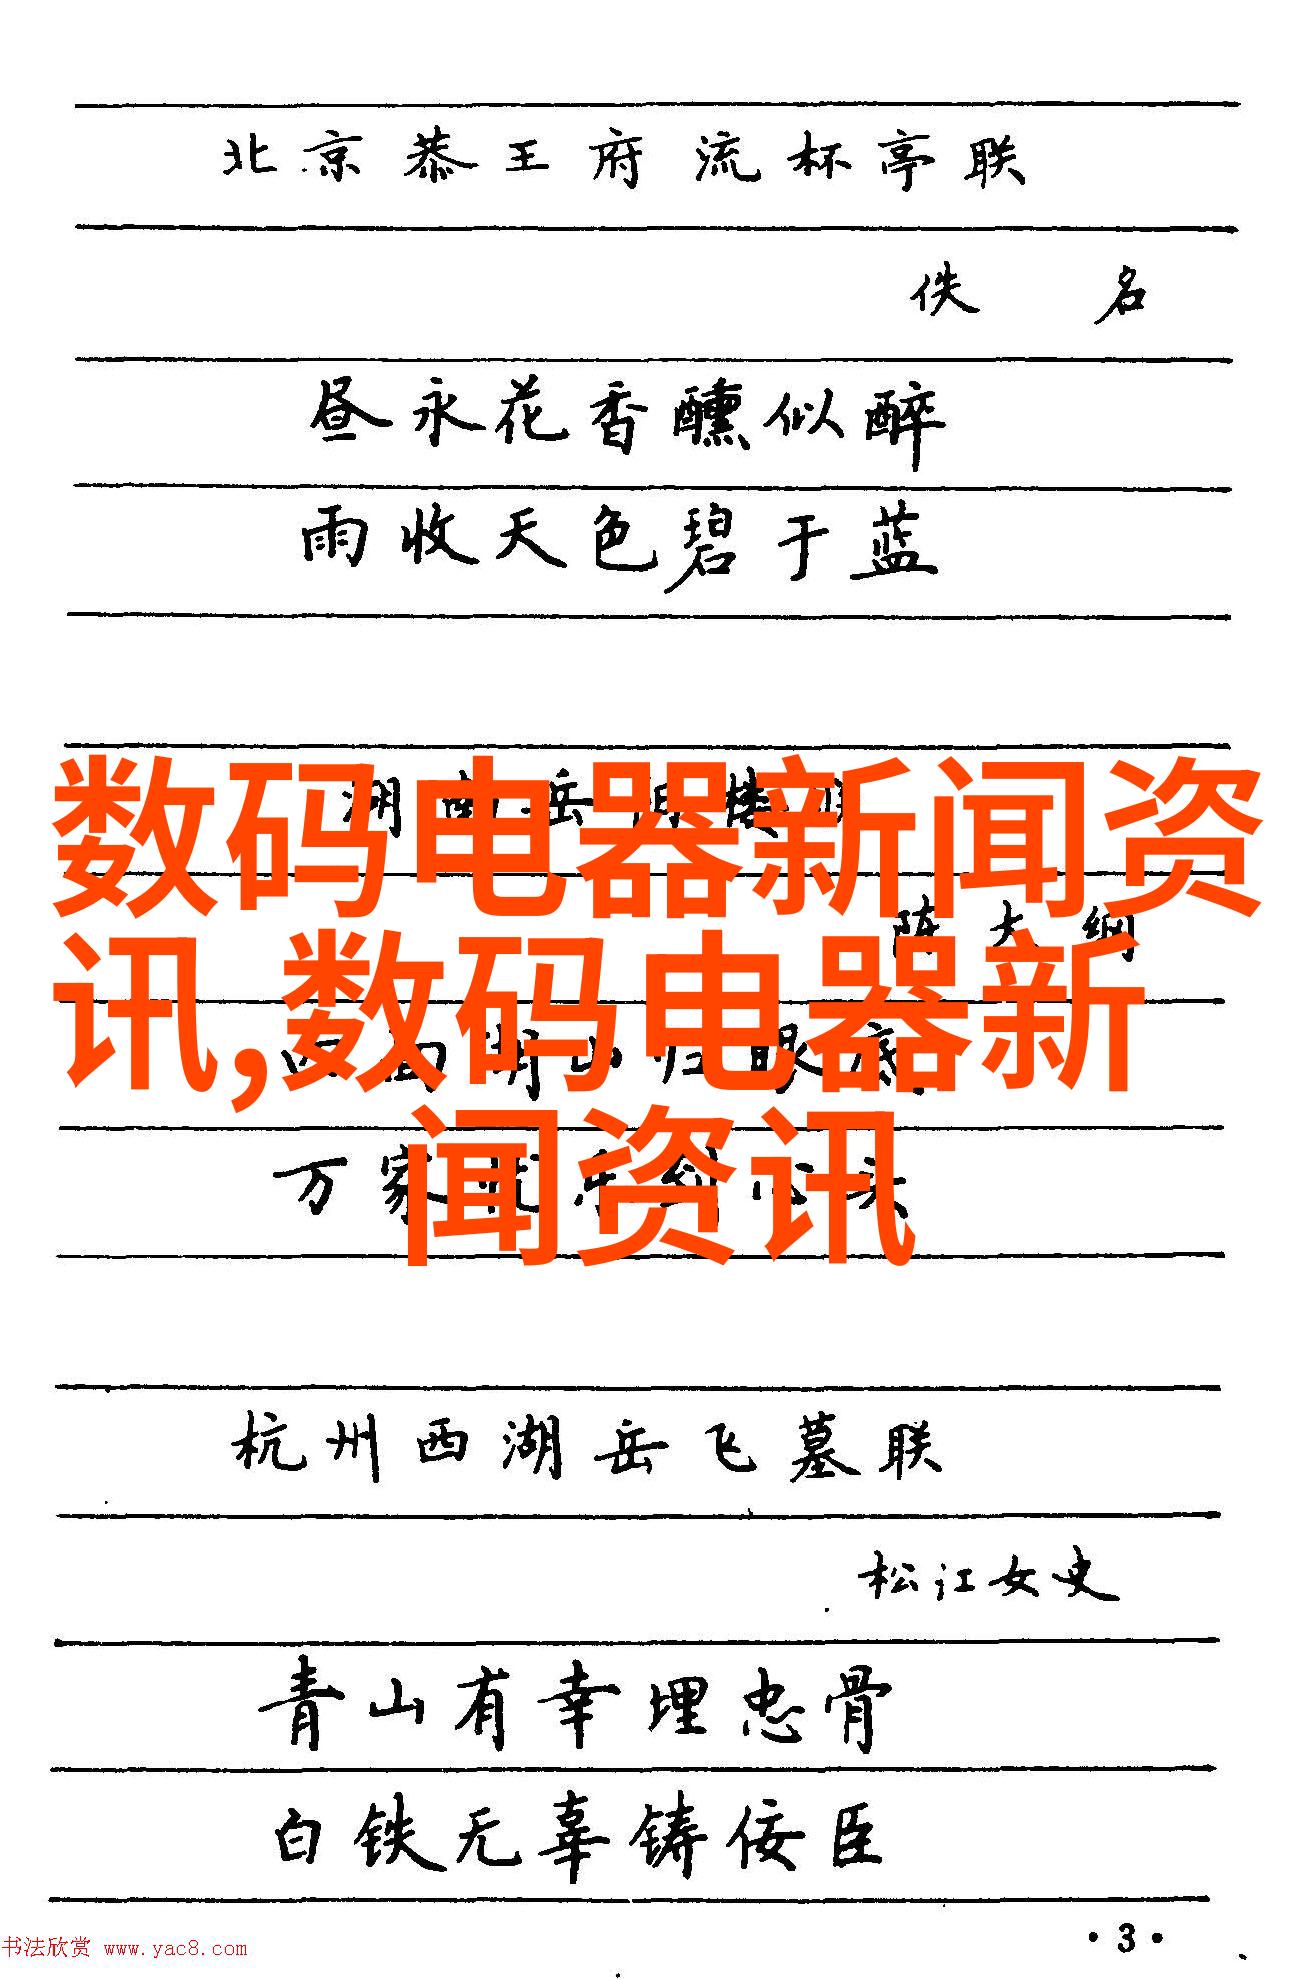 北京恭王府流杯亭联
佚名
昼永花香醺似醉
雨收天色碧于蓝
湖南岳阳楼联
陈大纲
四面湖山归眼底
万家忧乐到心头
数码电器新闻资
讯,数码电器新
闻资讯
杭州西湖岳飞墓联
松江女史
青山有幸埋忠骨
白铁无辜铸佞臣
书法欣赏 www.yac8.com
·3·